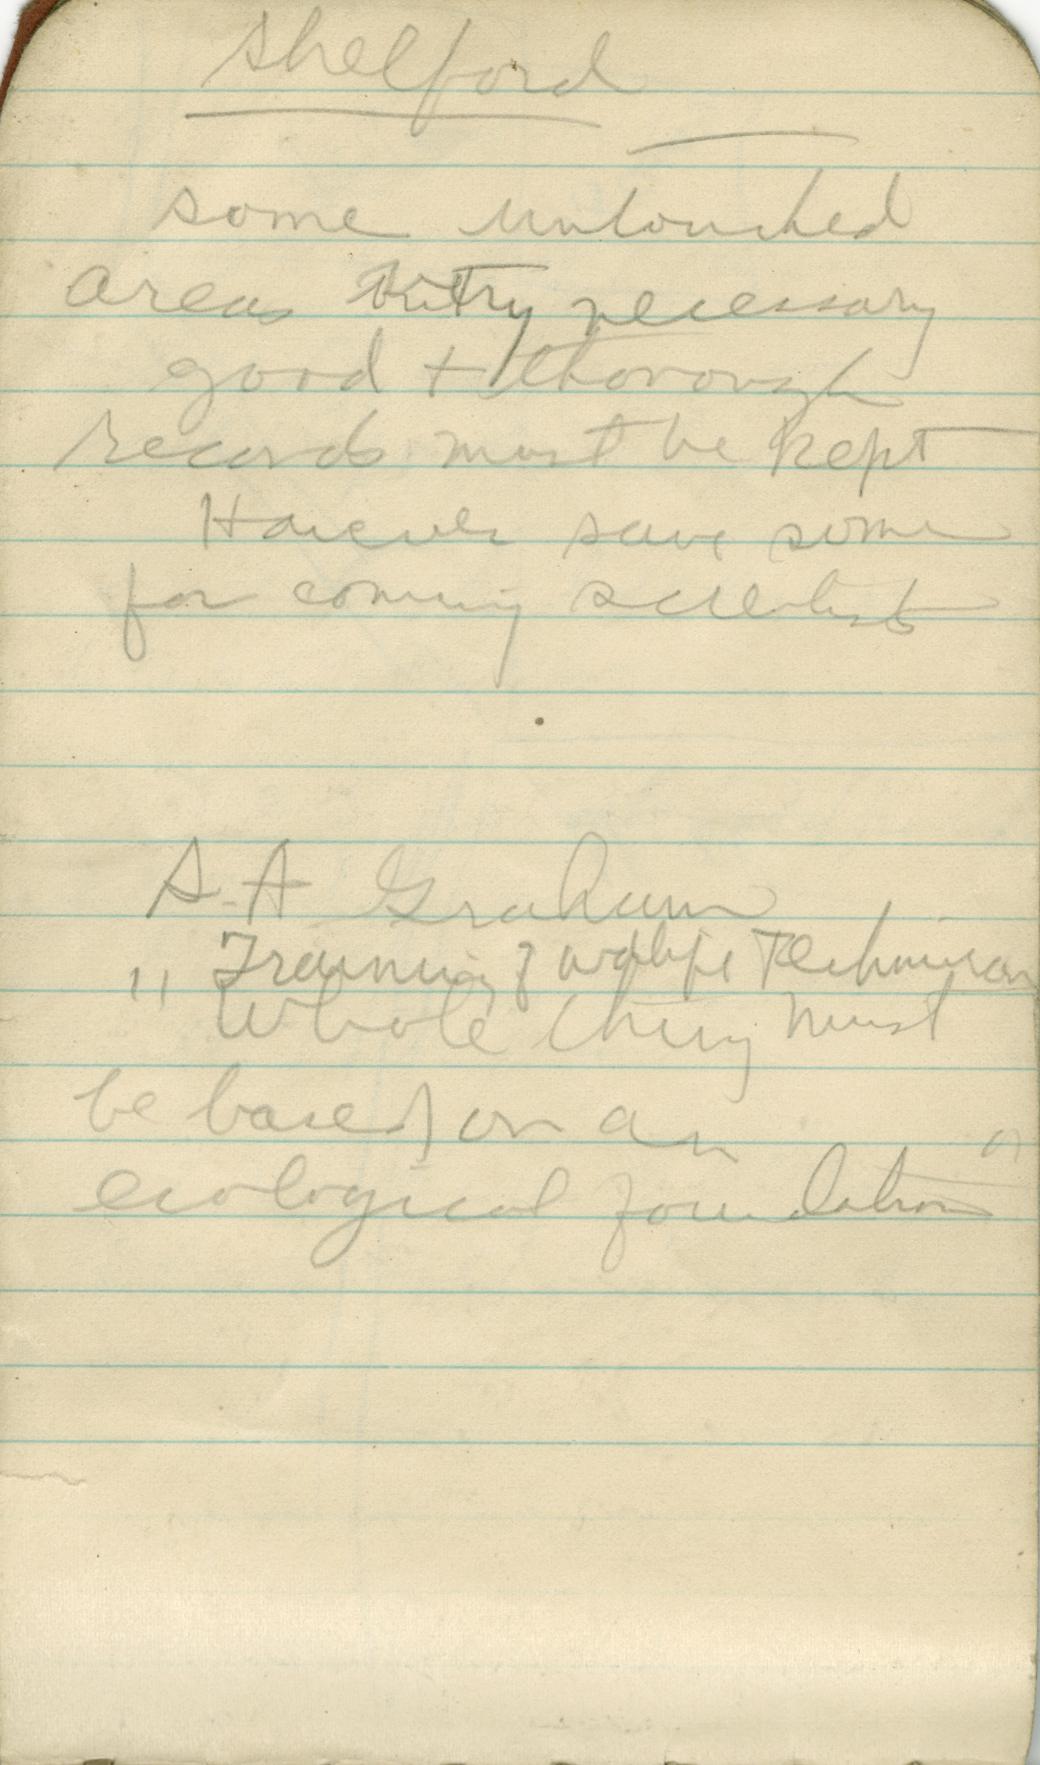 Shelford
some untouched
areas very necessary
good + thorough
records must be kept
However save some
for coming scientists
S.A Graham
" Training of wildlife Technician
Whole thing must
be based on an
ecological foundation"